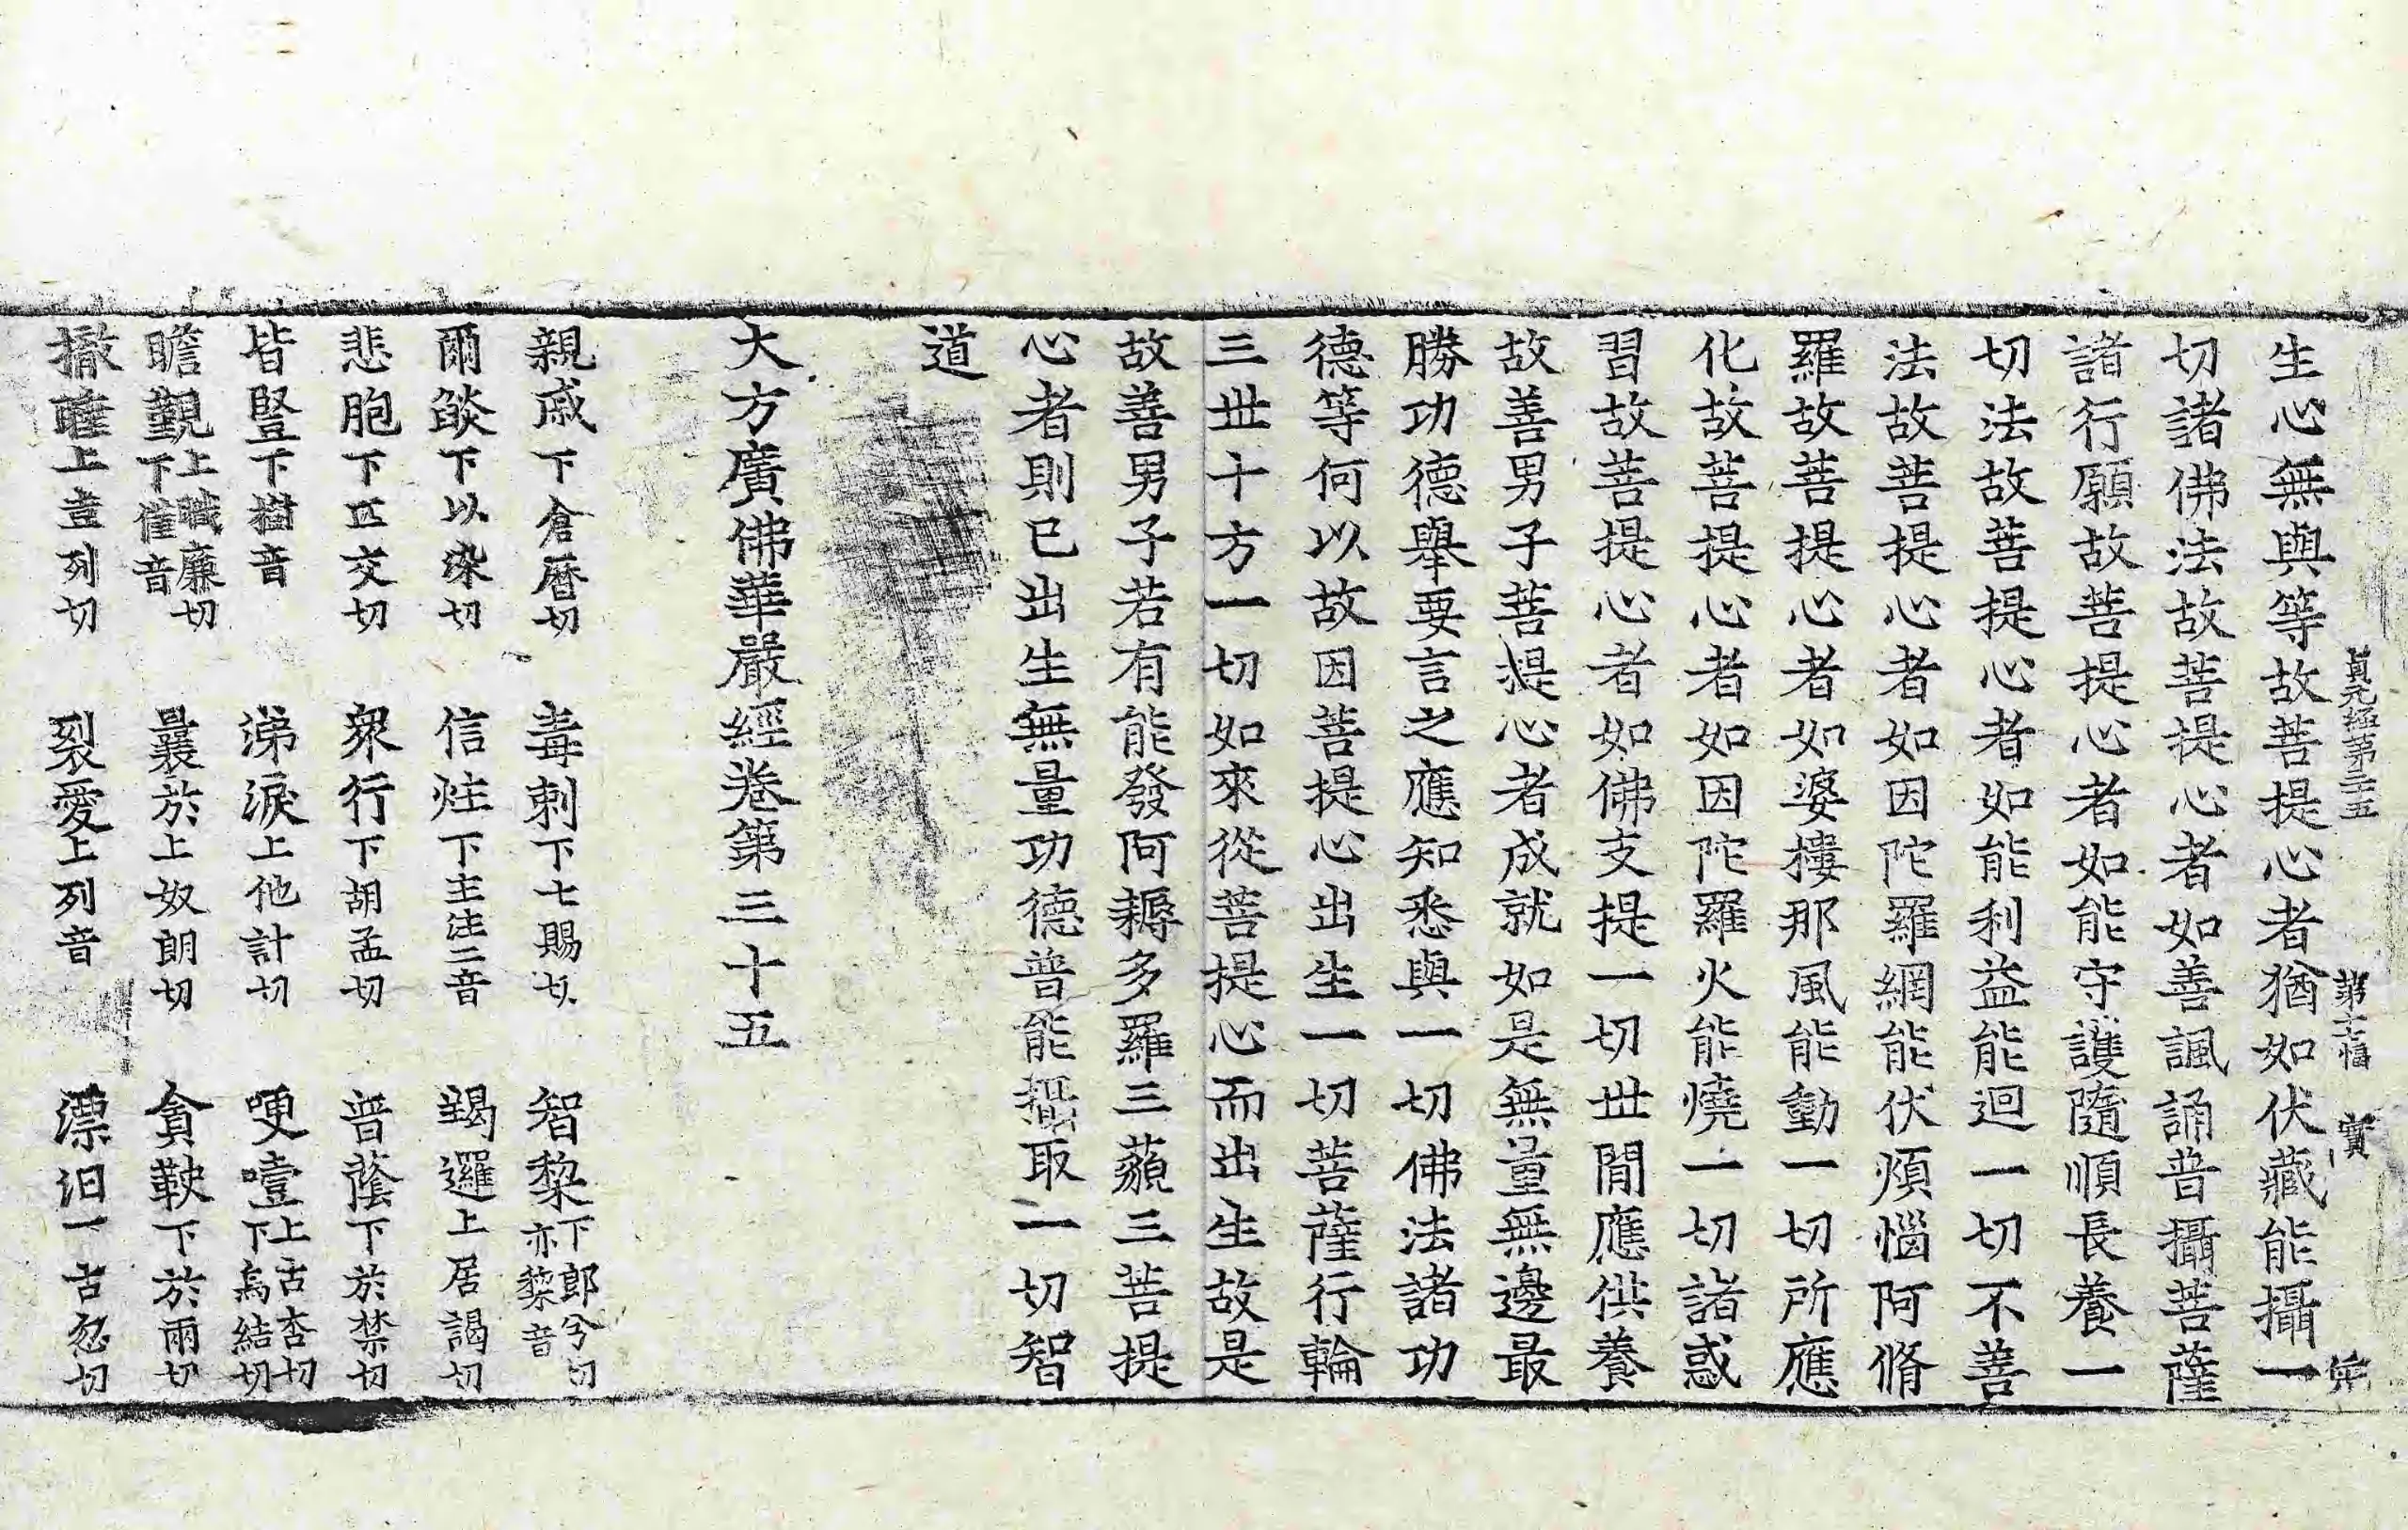 貞元經第三十五 第十七幅 實
生心無與等故菩提心者猶如伏藏能攝一
切諸佛法故菩提心者如善諷誦普攝菩薩
諸行願故菩提心者如能守護隨順長養一
切法故菩提心者如能利益能迴一切不善
法故菩提心者如因陀羅網能伏煩惱阿脩
羅故菩提心者如婆摟那風能動一切所應
化故菩提心者如因陀羅火能燒一切諸惑
習故菩提心者如佛支提一切世閒應供養
故善男子菩提心者成就如是無量無邊最
勝功德舉要言之應知悉與一切佛法諸功
德等何以故因菩提心出生一切菩薩行輪
三世十方一切如來從菩提心而出生故是
故善男子若有能發阿耨多羅三藐三菩提
心者則已出生無量功德普能攝取一切智
道
大方廣佛華嚴經卷第三十五
親戚下倉曆切 毒刺下七賜切 智棃下郎兮切亦黎音
爾燄下以染切 信炷下主注二音 竭邏上居謁切
悲胞下匹交切 衆行下胡孟切 普蔭下於禁切
皆豎下樹音 涕淚上他計切 哽噎上古杏切下烏結切
瞻覲上職廉切下僅音 曩於上奴朗切 貪鞅下於兩切
撤上直列切 裂愛上列音 漂汩下古忽切